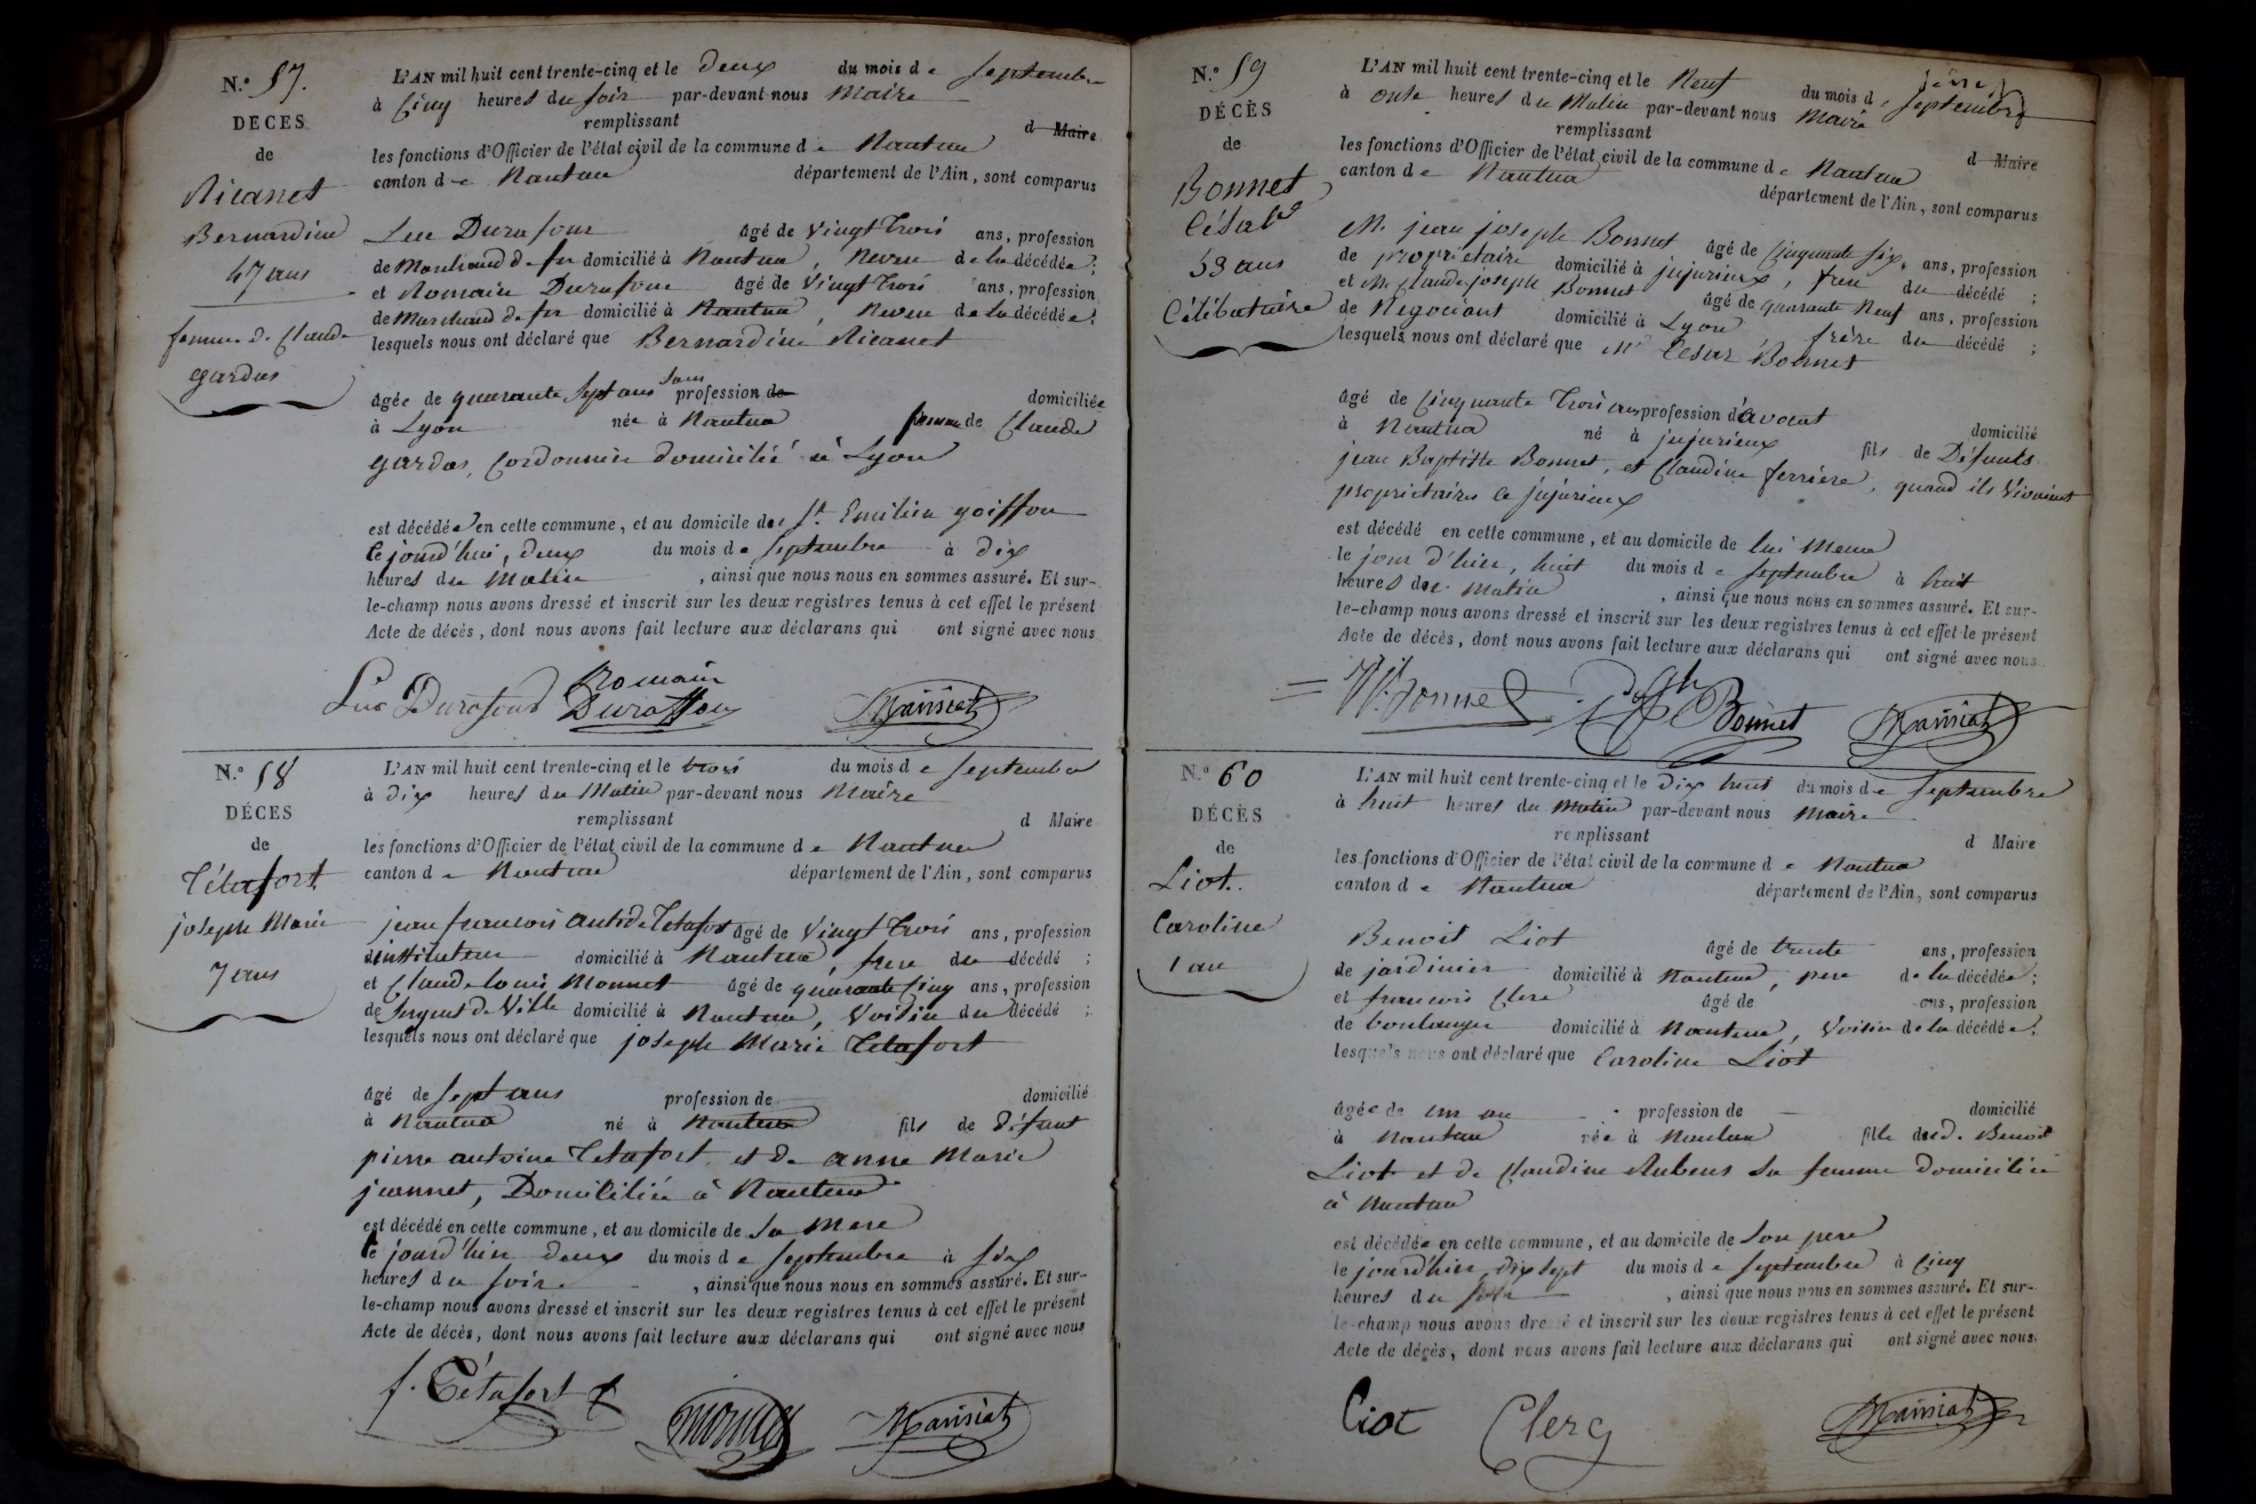 N.º 57.
DÉCÈS
de
Ricanet
Bernardine
47 ans
femme de Claude
gardas
L'AN mil huit cent trente-cinq et le deux du mois de septembre
à Cinq heures du soir par-devant nous Maire
remplissant d Maire
les fonctions d'Officier de l'état civil de la commune de Nantua
canton de Nantua département de l'Ain, sont comparus
Luc Durafour âgé de vingt trois ans, profession
de Marchand de fer domicilié à Nantua, Neveu de la décédée;
et Romain Durafour âgé de vingt trois ans, profession
de Marchand de fer domicilié à Nantua, Neveu de la décédée;
lesquels nous ont déclaré que Bernardine Ricanet
âgée de quarante sept ans sans profession de domiciliée
à Lyon née à Nantua femme de Claude
gardas, Cordonnier domicilié à Lyon
est décédée en cette commune, et au domicile de St. Emilien goiffon
le jourd'hui, deux du mois de septembre à dix
heures du Matin, ainsi que nous nous en sommes assuré. Et sur-
le-champ nous avons dressé et inscrit sur les deux registres tenus à cet effet le présent
Acte de décès, dont nous avons fait lecture aux déclarans qui ont signé avec nous
Luc Durafour Romain
Duraffour Mansiat
N.º 58
DÉCES
de
Tétafort
joseph Marie
7 ans
L'AN mil huit cent trente-cinq et le trois du mois de septembre
à dix heures du Matin par-devant nous Maire
remplissant d Maire
les fonctions d'Officier de l'état civil de la commune de Nantua
canton de Nantua département de l'Ain, sont comparus
jean francois antide Tetafort âgé de vingt trois ans, profession
d'instituteur domicilié à Nantua, frere du décédé;
et Claude louis Monnet âgé de quarante Cinq ans, profession
de Sergent de Ville domicilié à Nantua, Voisin du décédé;
lesquels nous ont déclaré que joseph Marie Tetafort
âgé de sept ans profession de domicilié
à Nantua né à Nantua fils de défunt
pierre antoine Tetafort et de anne Marie
jeannet, Domiciliée à Nantua
est décédé en cette commune, et au domicile de sa Mere
le jourd'hier deux du mois de septembre à six
heures du soir, ainsi que nous nous en sommes assuré. Et sur-
le-champ nous avons dressé et inscrit sur les deux registres tenus à cet effet le présent
Acte de décès, dont nous avons fait lecture aux déclarans qui ont signé avec nous
f. Tétafort Monnet Mansiat
N.º 59
DÉCÈS
de
Bonnet
César
53 ans
Célibataire
L'AN mil huit cent trente-cinq et le Neuf du mois de septembre
à onse heures du Matin par-devant nous Maire
remplissant d Maire
les fonctions d'Officier de l'état civil de la commune de Nantua
canton de Nantua département de l'Ain, sont comparus
M. jean joseph Bonnet âgé de Cinquante six, ans, profession
de propriétaire domicilié à jujurieux, frere du décédé;
et M. Claude joseph Bonnet âgé de quarante Neuf ans, profession
de Negociant domicilié à Lyon, frère du décédé;
lesquels nous ont déclaré que Mr Cesar Bonnet
âgé de Cinquante Trois ans profession d'avocat domicilié
à Nantua né à jujurieux fils de Défunts
jean Baptiste Bonnet, et Claudine ferrière, quand ils Vivaient
proprietaires à jujurieux
est décédé en cette commune, et au domicile de lui Meme
le jour d'hier, huit du mois de septembre à huit
heures du Matin, ainsi que nous nous en sommes assuré. Et sur-
le-champ nous avons dressé et inscrit sur les deux registres tenus à cet effet le présent
Acte de décès, dont nous avons fait lecture aux déclarans qui ont signé avec nous.
Bonnet Bonnet Mansiat
N.º 60
DÉCÈS
de
Liot.
Caroline
1 an
L'AN mil huit cent trente-cinq et le dix huit du mois de septembre
à huit heures du Matin par-devant nous Maire
remplissant d Maire
les fonctions d'Officier de l'état civil de la commune de Nantua
canton de Nantua département de l'Ain, sont comparus
Benoit Liot âgé de trente ans, profession
de jardinier domicilié à Nantua, pere de la décédée;
et francois Clerc âgé de ans, profession
de boulanger domicilié à Nantua, Voisin de la décédée;
lesquels nous ont déclaré que Caroline Liot
âgée de un an profession de domicilié
à Nantua née à Nantua fille de Benoit
Liot et de Claudine Rubens sa femme domiciliée
à Nantua
est décédée en cette commune, et au domicile de son pere
le jourd'hier, dix sept du mois de septembre à Cinq
heures du soir, ainsi que nous nous en sommes assuré. Et sur-
le-champ nous avons dressé et inscrit sur les deux registres tenus à cet effet le présent
Acte de décès, dont nous avons fait lecture aux déclarans qui ont signé avec nous.
Liot Clerc Mansiat